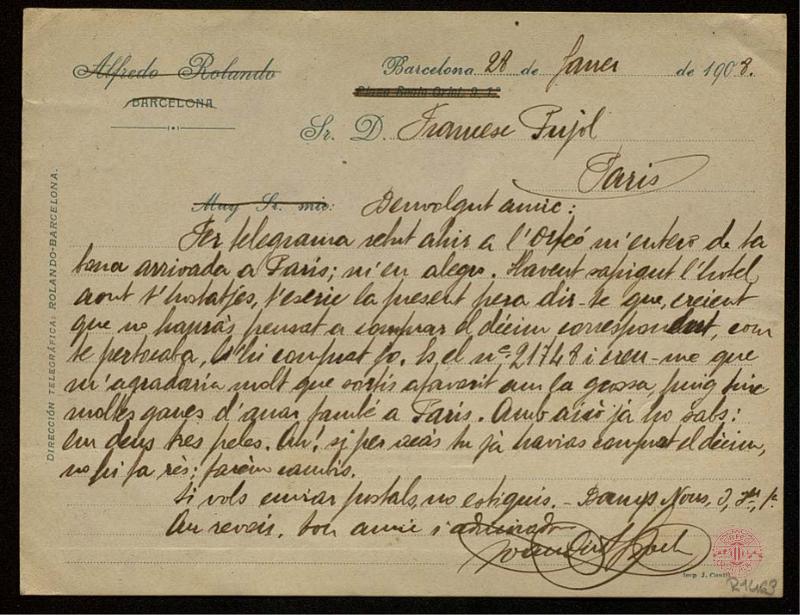 Alfredo Rolando
BARCELONA
Barcelona 28 de Janer de 1908.
Sr. D. Francesc Pujol
Paris
Muy Sr. mio: Benvolgut amic:
Per telegrama rebut ahir a l'Orfeó m'entero de ta
bona arrivada a París; m'en alegro. Havent sapigut l'hotel
aont t'hostatjes, t'escric la present pera dir-te que, creient
que no hauràs pensat a comprar el dècim corresponent, com
te pertocava, l'hi comprat jo. Es el nº 21748 i creu-me que
m'agradaría molt que sortís afavorit am la grossa, puig tinc
moltes ganes d'anar també a París. Amb aixó já ho sabs:
em deus tres peles. Ah! si per acás tu já havías comprat el dècim,
no hi fa rès; farèm cambis.
Si vols enviar postals, no estiguis. - Banys Nous,
Au revoir, bon amic i admirador
DIRECCIÓN TELEGRÁFICA: ROLANDO-BARCELONA.
Imp. J.
R1463